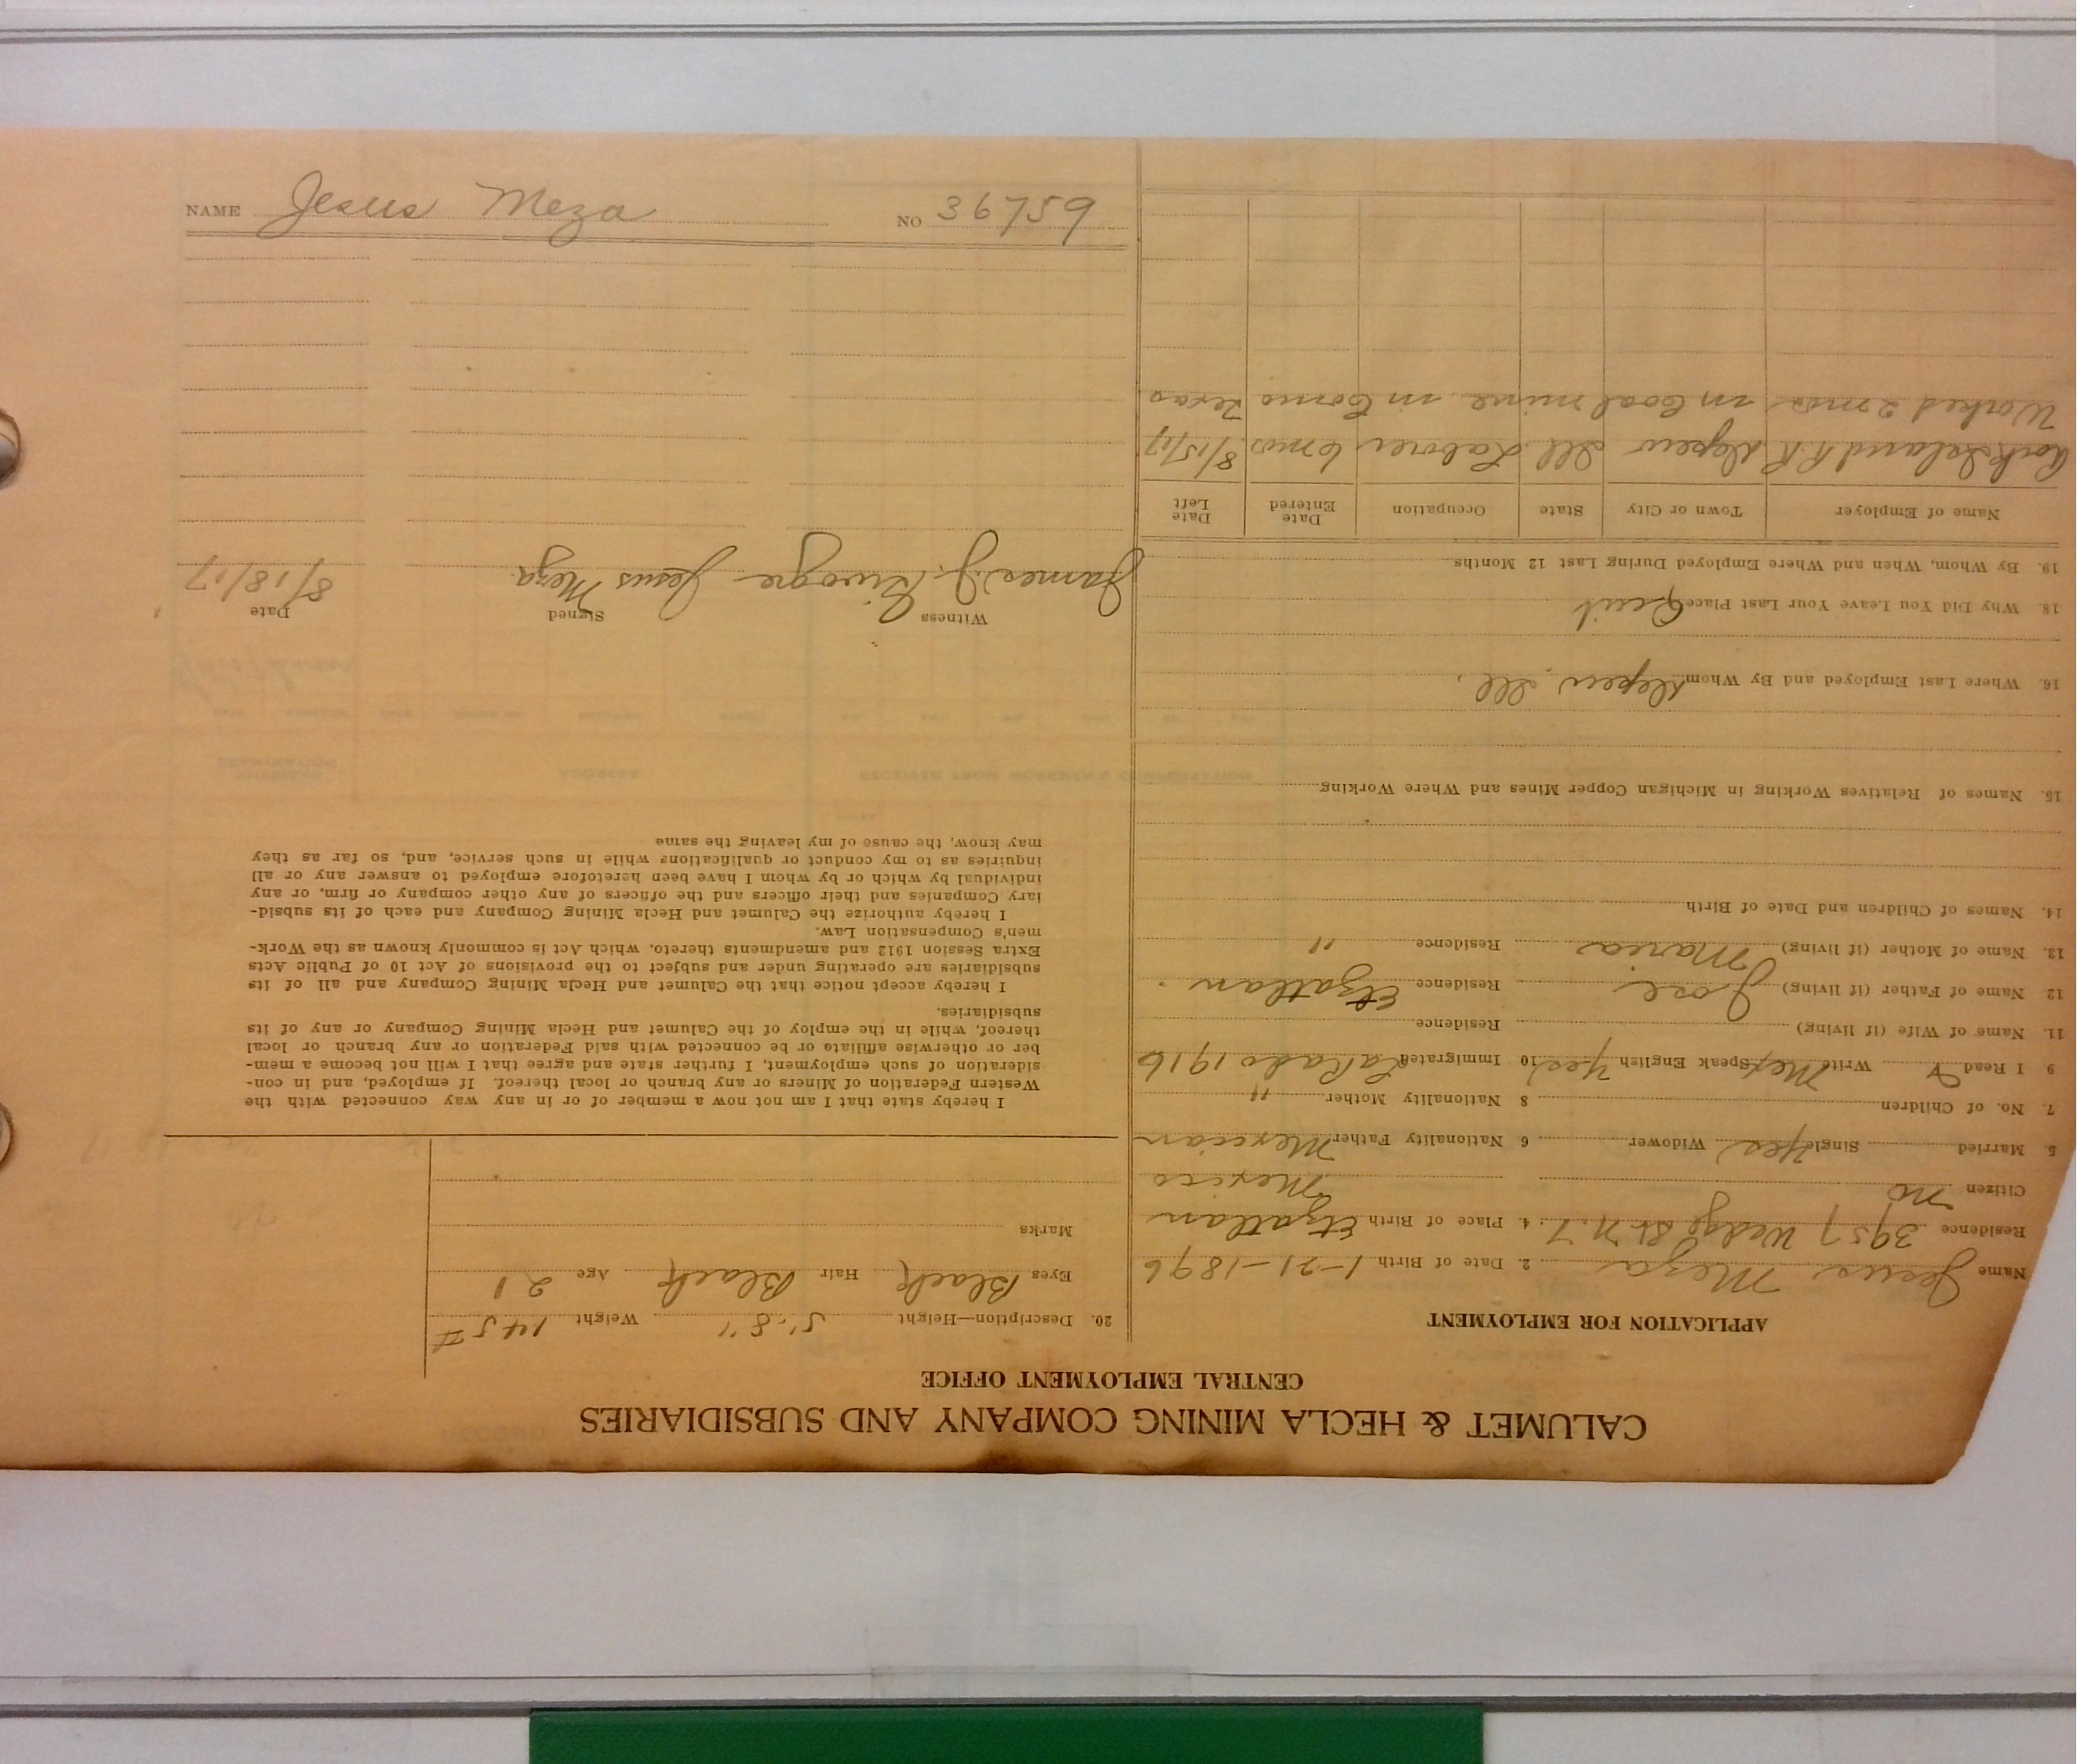 CALUMET & HECLA MINING COMPANY AND SUBSIDIARIES
CENTRAL EMPLOYMENT OFFICE
APPLICATION FOR EMPLOYMENT
Name Jesus Meza 2. Date of Birth 1-21-1896
Residence 3957 St 4. Place of Birth Etzatlan
Citizen no Mexico
5. Married Single Yes Widower 6 Nationality Father Mexican
7. No. of Children 8 Nationality Mother "
9 I Read Write Mex Speak English Yes 10 Immigrated LaRado 1916
11. Name of Wife (if living) Residence
12 Name of Father (if living) Jose Residence Etzatlan
13. Name of Mother (if living) Maria Residence "
14. Names of Children and Date of Birth
15. Names of Relatives Working in Michigan Copper Mines and Where Working
16. Where Last Employed and By Whom Depew, Ill.
18. Why Did You Leave Your Last Place Quit
19. By Whom, When and Where Employed During Last 12 Months
Name of Employer Town or City State Occupation Date Entered Date Left
Rock Island R.R Depew Ill Laborer 6 mos 8/15/17
Worked 2 mos in Coal mine in Como Texas
20. Description—Height 5'.8" Weight 145 #
Eyes Black Hair Black Age 21
Marks
I hereby state that I am not now a member of or in any way connected with the
Western Federation of Miners or any branch or local thereof. If employed, and in con-
sideration of such employment, I further state and agree that I will not become a mem-
ber or otherwise affiliate or be connected with said Federation or any branch or local
thereof, while in the employ of the Calumet and Hecla Mining Company or any of its
subsidiaries.
I hereby accept notice that the Calumet and Hecla Mining Company and all of its
subsidiaries are operating under and subject to the provisions of Act 10 of Public Acts
Extra Session 1912 and amendments thereto, which Act is commonly known as the Work-
men's Compensation Law.
I hereby authorize the Calumet and Hecla Mining Company and each of its subsid-
iary Companies and their officers and the officers of any other company or firm, or any
individual by which or by whom I have been heretofore employed to answer any or all
inquiries as to my conduct or qualifications while in such service, and, so far as they
may know, the cause of my leaving the same
Witness Signed Date
James J. Jesus Meza 8/18/17
NAME Jesus Meza NO 36759